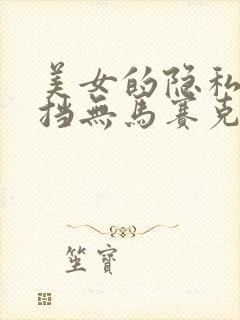 美女的隐私
挡無馬赛克
笙寶